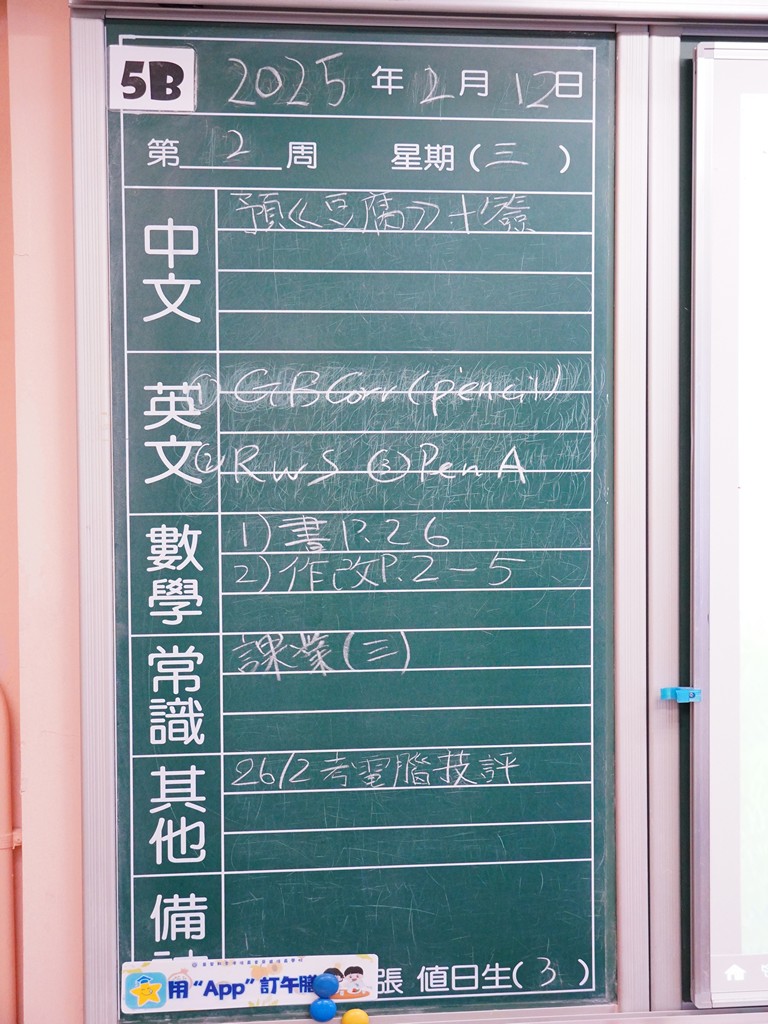 5B 2025 年 2 月 12 日
第 2 周 星期 ( 三 )
中文
預《豆腐》+簽
英文
① GB Corr (pencil)
② RWS ③ Pen A
數學
1) 書 P.26
2) 作改 P.2-5
常識
課業 (三)
其他
26/2 考電腦技評
備
張 值日生 ( 3 )
用 “App” 訂午膳